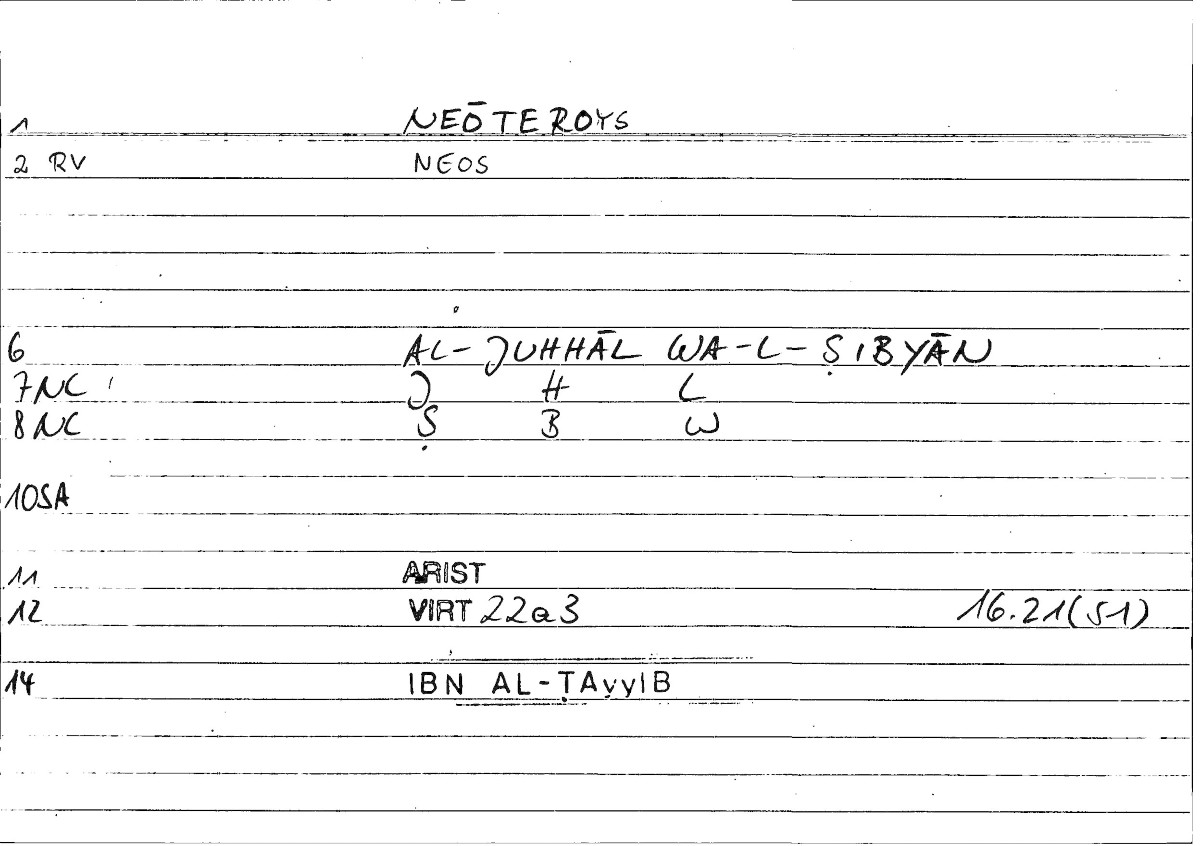 1 NEŌTEROYS
2 RV NEOS
6 AL-JUHHĀL WA-L-ṢIBYĀN
7NC J H L
8NC Ṣ B W
10SA
11 ARIST
12 VIRT 22a3 16.21(51)
14 IBN AL-ṬAyyIB